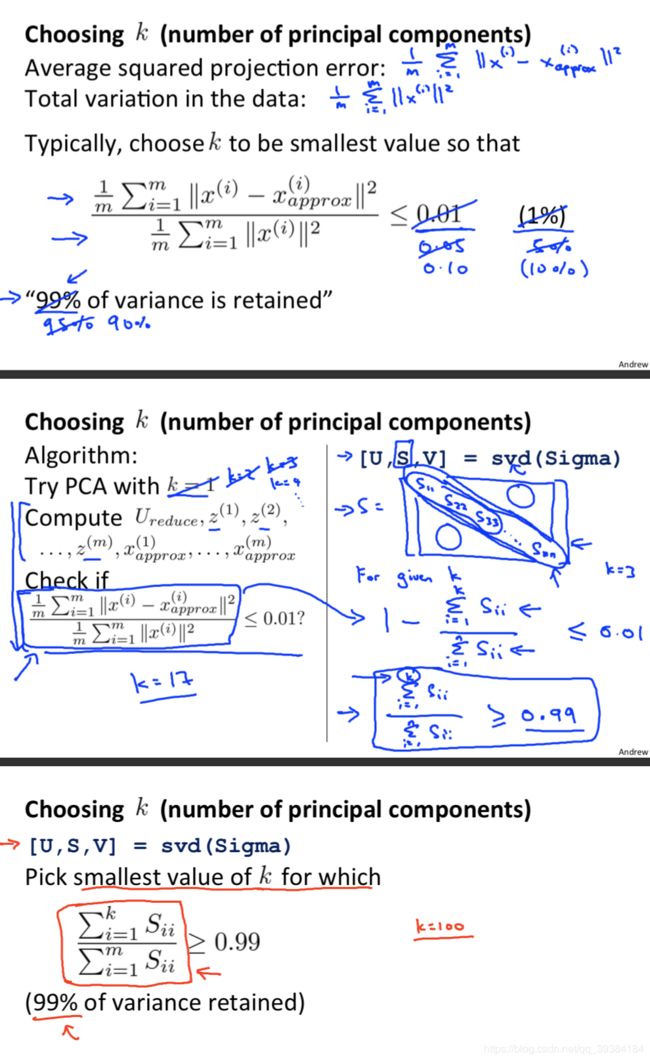 Choosing k (number of principal components)
Average squared projection error: 1/m Σ_{i=1}^{m} ||x^{(i)} - x_{approx}^{(i)}||²
Total variation in the data: 1/m Σ_{i=1}^{m} ||x^{(i)}||²
Typically, choose k to be smallest value so that
→ \frac{\frac{1}{m} \sum_{i=1}^{m} \|x^{(i)} - x_{approx}^{(i)}\|^2}{\frac{1}{m} \sum_{i=1}^{m} \|x^{(i)}\|^2} ≤ 0.01 (1%)
0.05 5%
0.10 (10%)
→ "99% of variance is retained"
95% 90%
Andrew
Choosing k (number of principal components)
Algorithm:
Try PCA with k = 1 k=2 k=3
k=4
Compute U_{reduce}, z^{(1)}, z^{(2)},
..., z^{(m)}, x_{approx}^{(1)}, ..., x_{approx}^{(m)}
Check if
\frac{\frac{1}{m} \sum_{i=1}^{m} \|x^{(i)} - x_{approx}^{(i)}\|^2}{\frac{1}{m} \sum_{i=1}^{m} \|x^{(i)}\|^2} ≤ 0.01?
k = 17
→ [U,S,V] = svd(Sigma)
→ S =
S₁₁ S₂₂ S₃₃ ... Sₙₙ
For given k
k=3
1 - \frac{\sum_{i=1}^{k} S_{ii}}{\sum_{i=1}^{n} S_{ii}} ≤ 0.01
→ \frac{\sum_{i=1}^{k} S_{ii}}{\sum_{i=1}^{n} S_{ii}} ≥ 0.99
Andrew
Choosing k (number of principal components)
→ [U,S,V] = svd(Sigma)
Pick smallest value of k for which
\frac{\sum_{i=1}^{k} S_{ii}}{\sum_{i=1}^{m} S_{ii}} ≥ 0.99
k=100
(99% of variance retained)
https://blog.csdn.net/qq_39384184